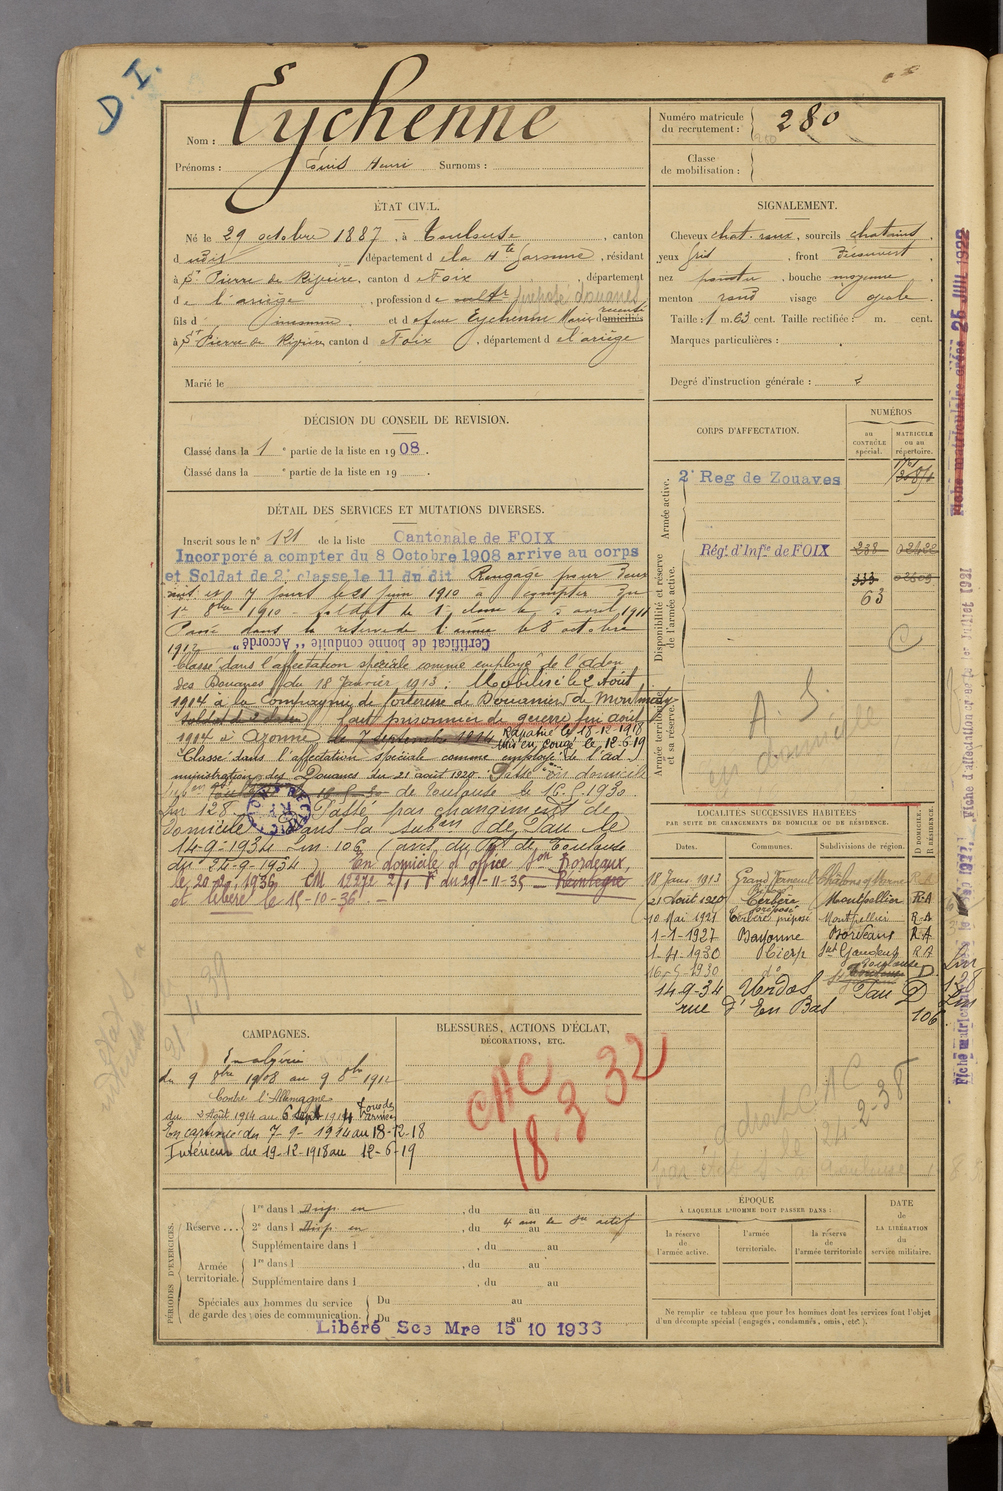 D. I.
Nom : Eychenne
Prénoms : Louis Henri Surnoms :
Numéro matricule du recrutement : 280
Classe de mobilisation :
ÉTAT CIVIL.
Né le 29 octobre 1887, à Toulouse, canton
d udit, département d e la Hte Garonne, résidant
à St Pierre de Rivière, canton d e Foix, département
d e l'ariège, profession d e cultr préposé douanes
fils d inconnu. et d e feue Eychenne Marie domiciliés
à St Pierre de Rivière, canton d e Foix, département d e l'ariège
Marié le
SIGNALEMENT.
Cheveux chat. roux, sourcils chatains,
yeux gris, front découvert,
nez pointu, bouche moyenne,
menton rond visage ovale.
Taille : 1 m. 63 cent. Taille rectifiée : m. cent.
Marques particulières :
Degré d'instruction générale : 2
DÉCISION DU CONSEIL DE REVISION.
Classé dans la 1e partie de la liste en 1908.
Classé dans la e partie de la liste en 19
CORPS D'AFFECTATION.
NUMÉROS
au CONTRÔLE spécial.
MATRICULE ou au répertoire.
Armée active.
2e Reg de Zouaves
Disponibilité et réserve de l'armée active.
Régt d'Infie de FOIX 238 02422
333 02609
63
C
Armée territoriale et sa réserve.
A S.
en domicile
DÉTAIL DES SERVICES ET MUTATIONS DIVERSES.
Inscrit sous le n° 121 de la liste Cantonale de FOIX
Incorporé a compter du 8 Octobre 1908 arrive au corps
et Soldat de 2e classe le 11 du dit Rengagé pour deux
ans et 7 jours le 21 juin 1910 à compter du
1er 8bre 1910 - soldat de 1e classe le 5 avril 1911
Passé dans la réserve de l'armée le 8 octobre
1912 Certificat de bonne conduite "Accordé"
Classé dans l'affectation spéciale comme employé de l'adon
des Douanes du 18 Janvier 1913. Mobilisé le 2 Août
1914 à la compagnie de forteresse de Douaniers de Montmédy
soldat de 2 classe fait prisonnier de guerre fin août
1914 à Azonne le 7 septembre 1914 Rapatrié le 18-12-1918
Mis en congé le 12-6-19
Classé dans l'affectation spéciale comme employé de l'ad
ministration des Douanes du 21 août 1920. Passé en domicile
de Toulouse le 16-5-1930.
Lm 128 Passé par changement de
domicile dans la subon de Pau le
14-9-1934 Lm. 106 (avis du Rt de Toulouse
du 24-9-1934) En domicile d'office son Bordeaux
le 20 1936 CM 12272 2/1 F du 29-11-35 - Réintégré
et libéré le 15-10-36. -
LOCALITÉS SUCCESSIVES HABITÉES
PAR SUITE DE CHANGEMENTS DE DOMICILE OU DE RÉSIDENCE.
Dates. Communes. Subdivisions de région. D DOMICILE. R RÉSIDENCE.
18 Janv. 1913 Grand Verneuil Châlons s/ Marne R A
21 Août 1920 Cerbère Montpellier R A
10 Mai 1921 Cerbère préposé Montpellier R A
1-1-1927 Bayonne Bordeaux R A
1-4-1930 Cierp St Gaudens R A
16-5-1930 do Toulouse D. Lm 128
14-9-34 Urdos Pau D Lm 106
rue d'En Bas
CAMPAGNES.
En algérie
du 9 8bre 1908 au 9 8bre 1912
Contre l'Allemagne
du 2 Août 1914 au 6 sept 1914
En captivité du 7-9-1914 au 18-12-18
Intérieur du 19-12-1918 au 12-6-19
BLESSURES, ACTIONS D'ÉCLAT,
DÉCORATIONS, ETC.
CAC
18 3 32
a droit CAC
24-2-38
PÉRIODES D'EXERCICES.
Réserve... 1re dans l Disp. en, du au
2e dans l Disp. en, du au 4 ans de Sce actif
Supplémentaire dans l, du au
Armée territoriale. 1re dans l, du au
Supplémentaire dans l, du au
Spéciales aux hommes du service de garde des voies de communication. Du au
Du au
Libéré Sce Mre 15 10 1933
ÉPOQUE
À LAQUELLE L'HOMME DOIT PASSER DANS :
la réserve de l'armée active.
l'armée territoriale.
la réserve de l'armée territoriale
DATE de LA LIBÉRATION du service militaire.
Ne remplir ce tableau que pour les hommes dont les services font l'objet
d'un décompte spécial (engagés, condamnés, omis, etc.).
Fiche matriculaire créée 25 JUIL 1922